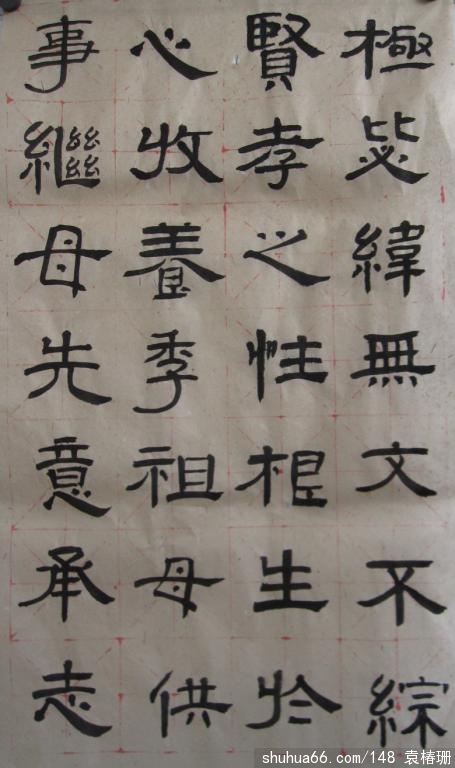 極毖緯無文不綜
賢孝之性根生於
心收養季祖母供
事繼母先意承志
shuhua66.com/148 袁椿珊